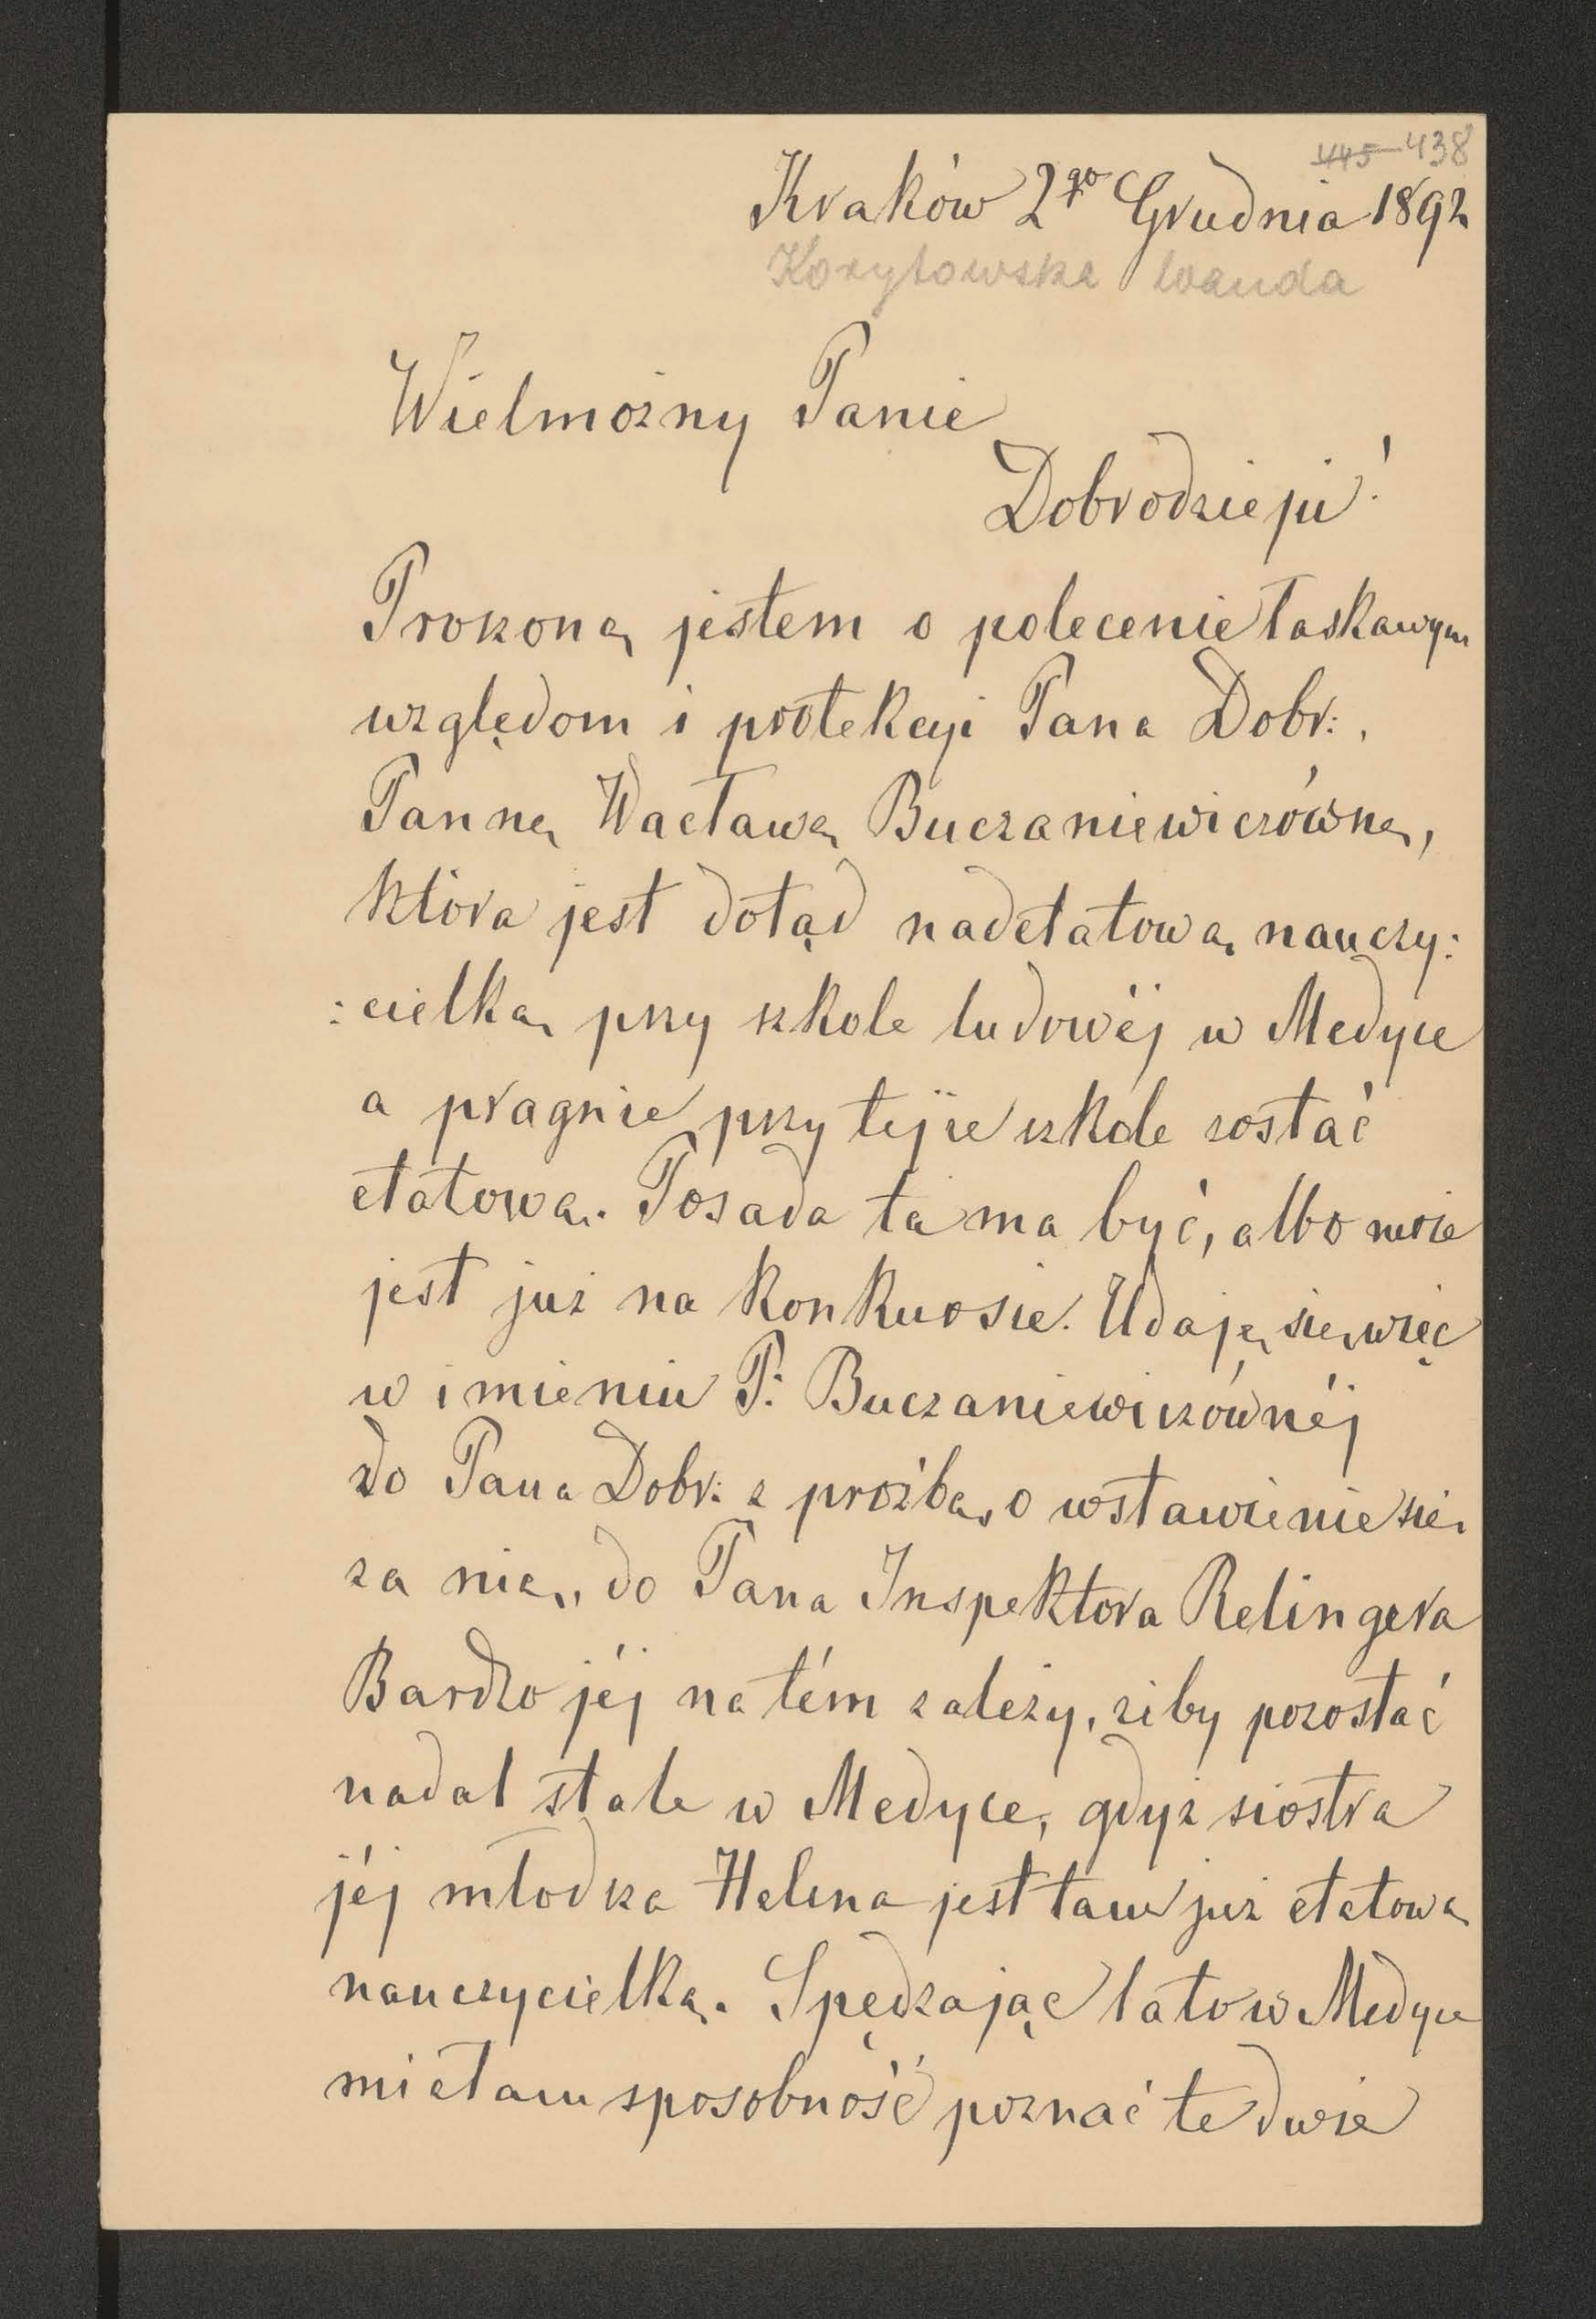 445 438
Kraków 2go Grudnia 1892
Korytowska Wanda
Wielmożny Panie
Dobrodzieju!
Proszoną jestem o polecenie łaskawym
względom i protekcyi Pana Dobr:,
Pannę Wacławę Buczaniewiczównę,
która jest dotąd nadetatową nauczy:
:cielką przy szkole ludowéj w Medyce
a pragnie przy tejże szkole zostać
etatową. Posada ta ma być, albo może
jest już na konkursie. Udaję się więc
w imieniu P: Buczaniewiczównéj
do Pana Dobr: z prośbą, o wstawienie się
za nią, do Pana Inspektora Relingera
Bardzo jéj na tém zależy, żeby pozostać
nadal stale w Medyce, gdyż siostra
jéj młodsza Helena jest tam już etatową
nauczycielką. Spędzając lato w Medyce
miałam sposobność poznać te dwie